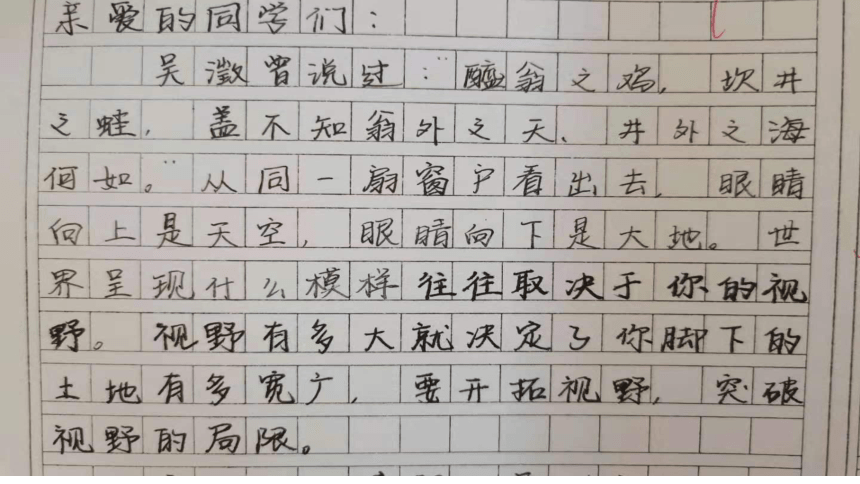 亲爱的同学们：
吴澂曾说过：“醯翁之鸡，坎井
之蛙，盖不知翁外之天、井外之海
何如。”从同一扇窗户看出去，眼睛
向上是天空，眼睛向下是大地。世
界呈现什么模样往往取决于你的视
野。视野有多大就决定了你脚下的
土地有多宽广，要开拓视野，突破
视野的局限。